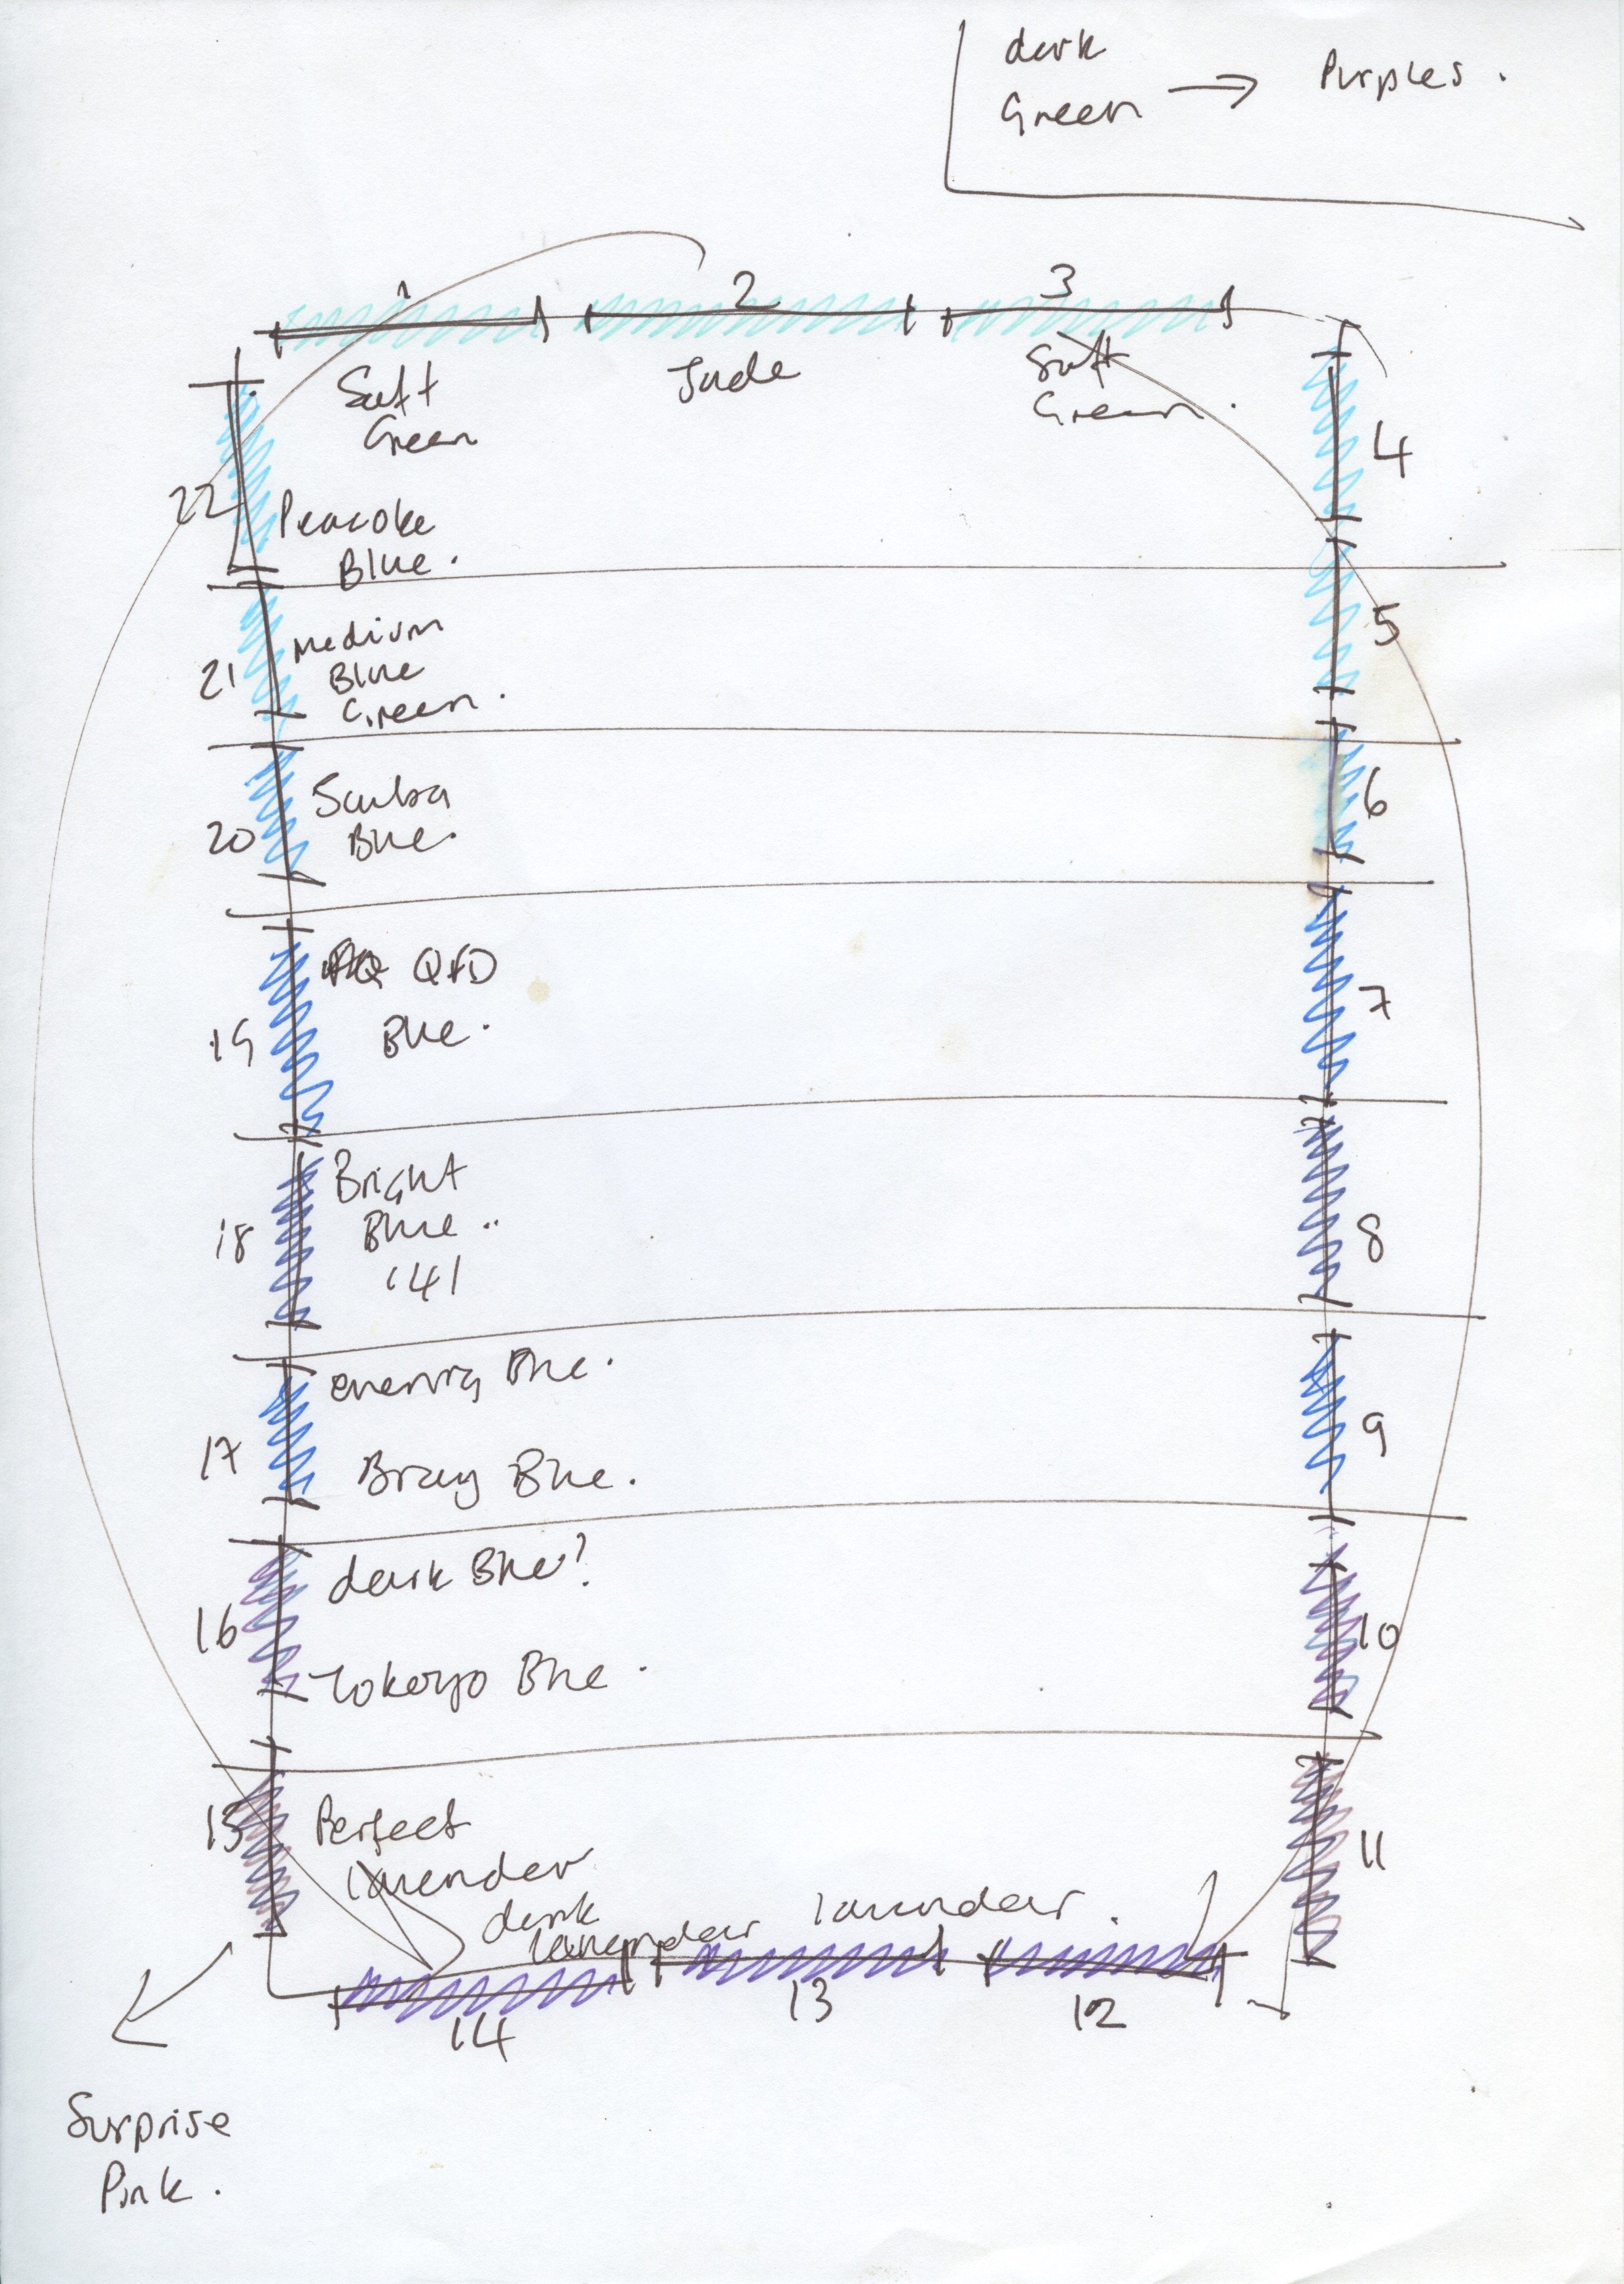 dark
Green → Purples.
1
2
3
Soft
Green
Jade
Soft
Green.
22
Peacoke
Blue.
4
21
Medium
Blue
Green.
5
20
Scuba
Blue.
6
19
Blue.
7
18
Bright
Blue..
141
8
17
Blue.
Bray Blue.
9
16
dark Blue?
Tokoryo Blue.
10
15
Perfect
lavender
11
dark
lavendar
lavendar.
14
13
12
Surprise
Pink.